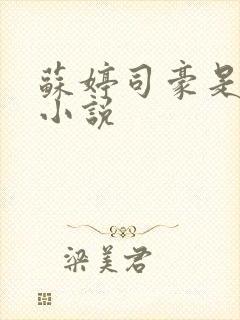 蘇婷司豪是
小説
梁美君